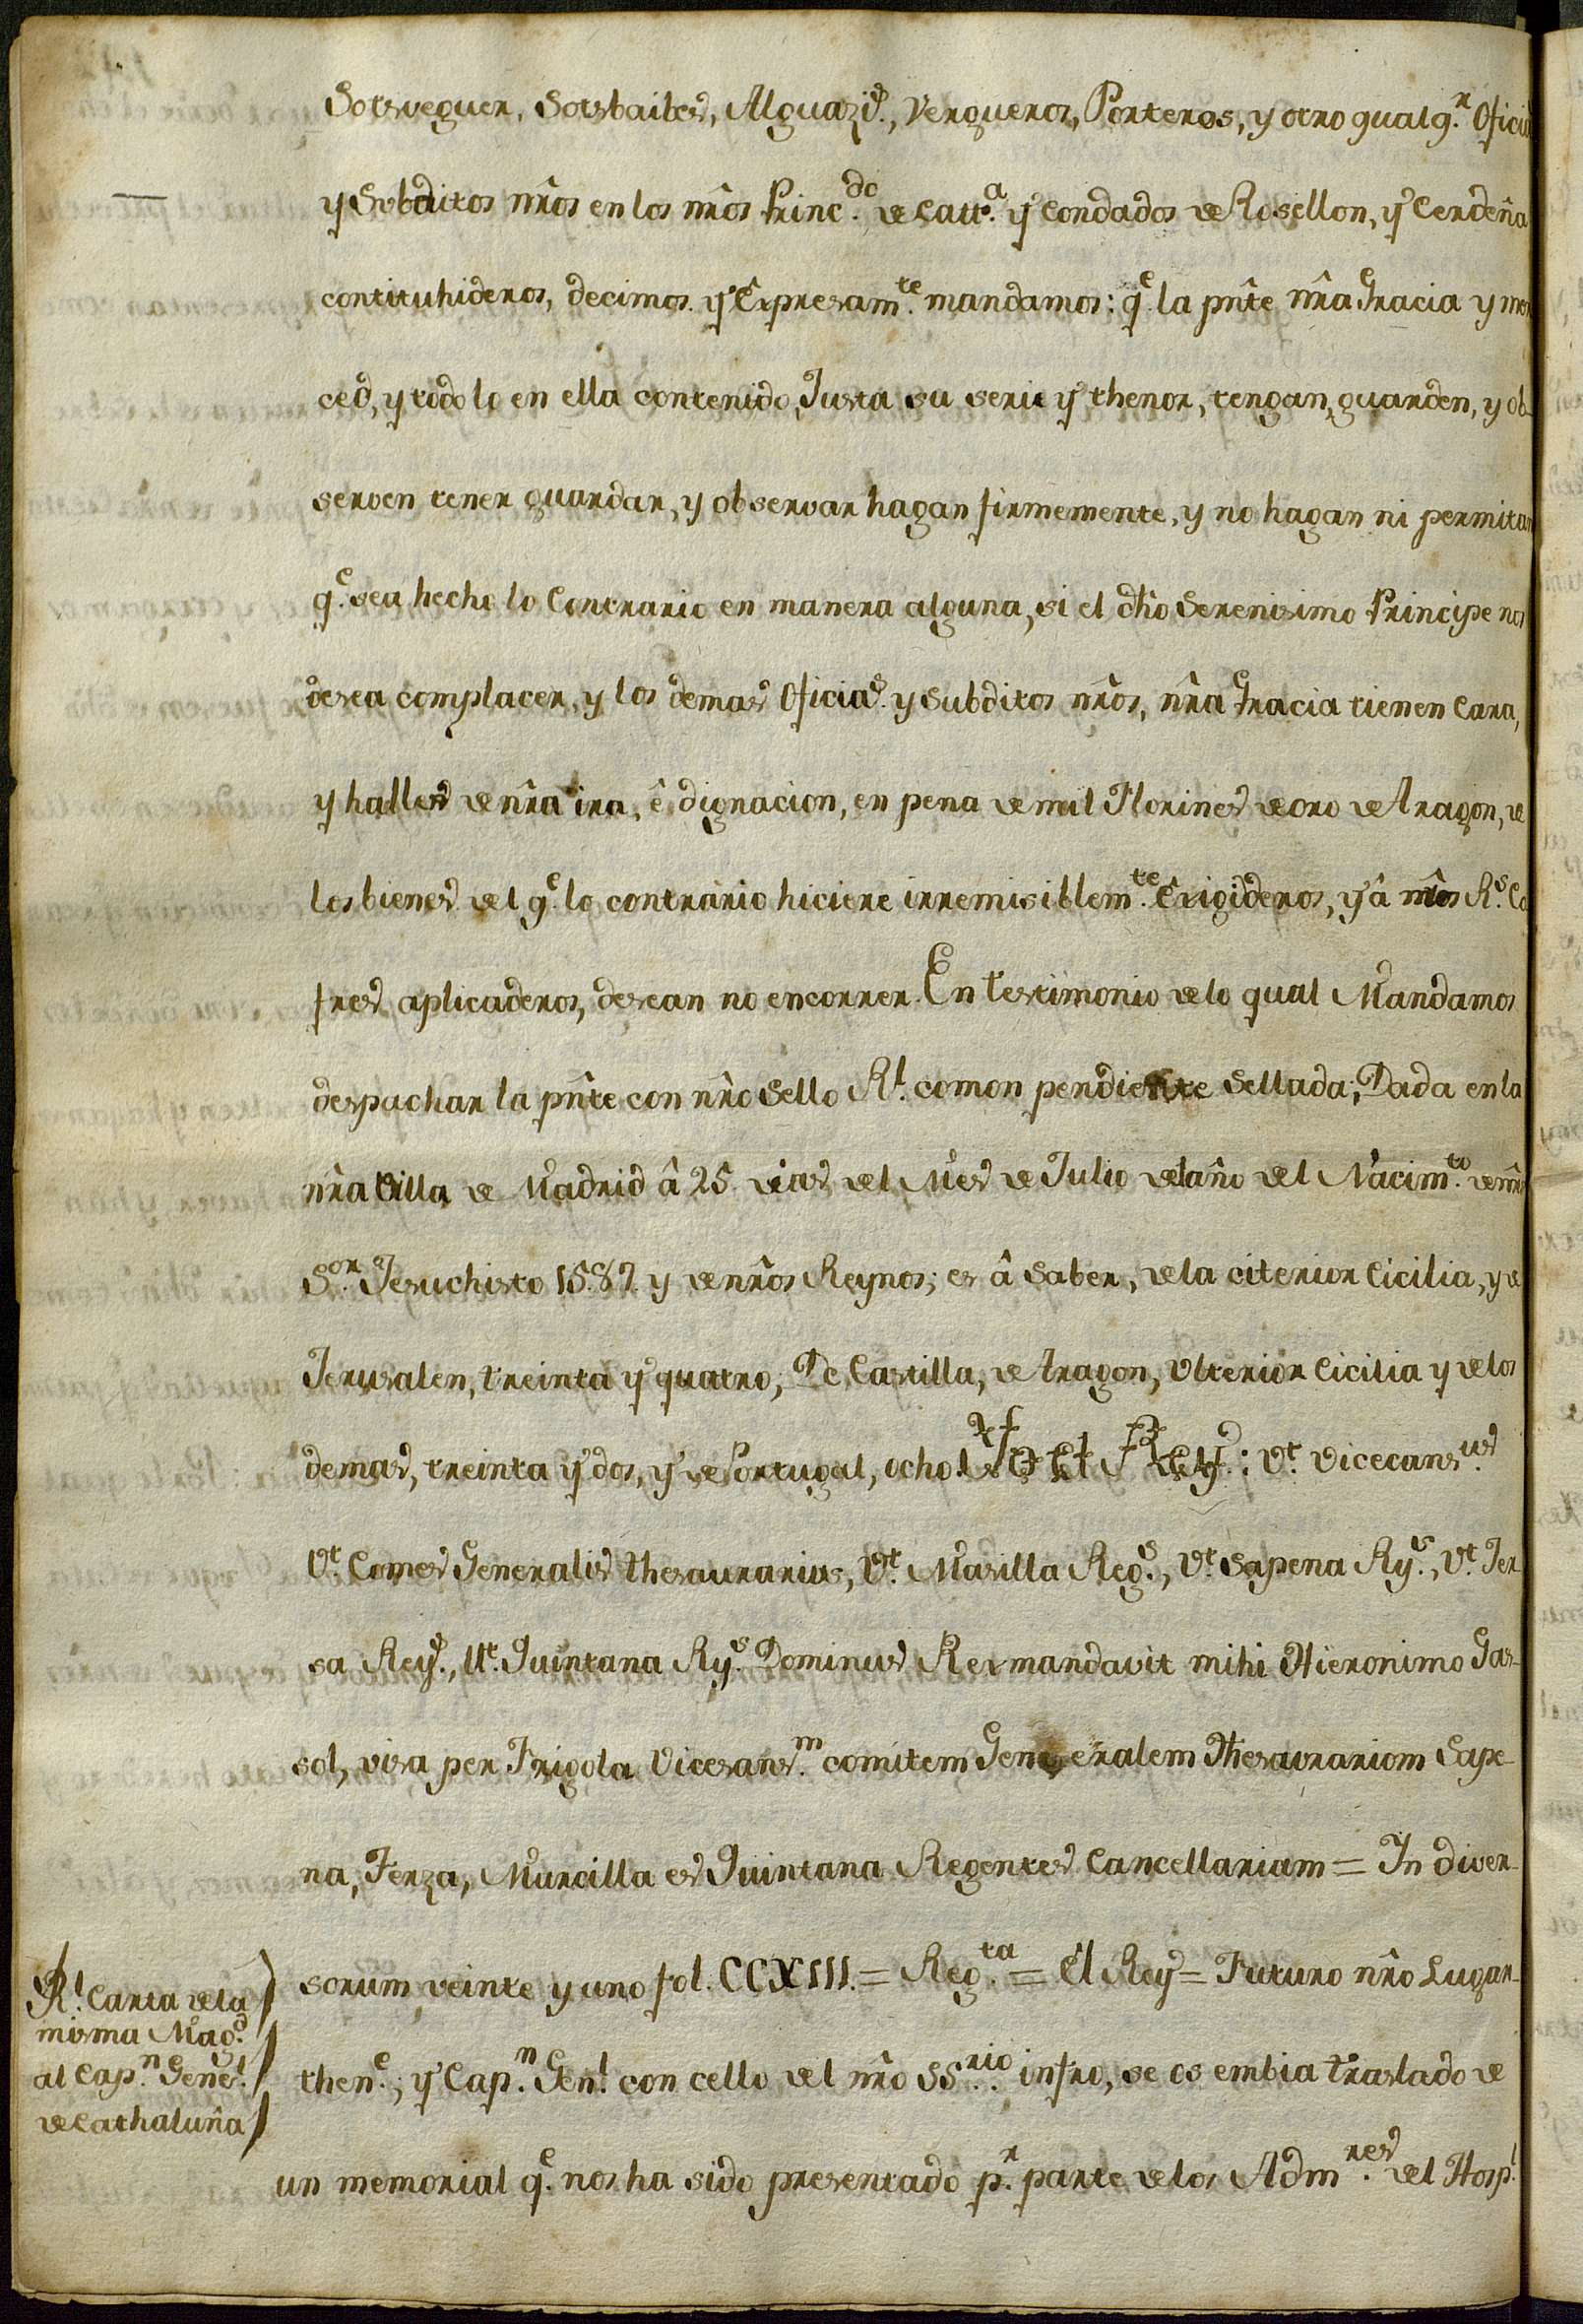 Sotsveguer, Sotsbailes, Alguazis., Vergueros, Porteros, y otro qualq.r Oficial
y Subditos nr̂os en los nr̂os Princ.do de Catt.a y Condados de Rosellon, y Cerdeña
contituhideros, decimos y Expresam.te mandamos: q.e la pn̂te nr̂a Gracia y mer
ced, y todo lo en ella contenido, Justa su serie y thenor, tengan, guarden, y ob-
serven tener guardar, y observar hagan firmemente, y no hagan ni permitan
q.e sea hecho lo Contrario en manera alguna, si el dĥo Serenisimo Principe nos
desea complacer, y los demas Oficias. y Subditos nr̂os, nr̂a Gracia tienen Cara,
y halles de nr̂a ira, ê dignacion, en pena de mil Florines de oro de Aragon, de
los bienes del q.e lo contrario hiciere irremisiblem.te Exigideros, y â nr̂os R.s Co
fres aplicaderos, desean no encorrer. En testimonio de lo qual Mandamos
despachar la pn̂te con nr̂o Sello R.l comon pendiente Sellada; Dada en la
nr̂a Villa de Madrid â 25 dias del Mes de Julio del año del Nacim.to de nr̂o
S.or Jesuchisto 1587 y de nr̂os Reynos; es â saber, de la citerior Cicilia, y de
Jerusalen, treinta y quatro, De Castilla, de Aragon, Ulterior Cicilia y de los
demas, treinta y dos, y de Portugal, ocho. Yo el Rey: V.t Vicecans.us
V.t Comes Generalis thesaurarius, V.t Masilla Reg.s, V.t Sapena Ry.s, V.t Ter
sa Reys., Ut. Quintana Ry.s Dominus Rex mandavit mihi Hieronimo Gas-
sol, visa per Frigola Vicesans.m comitem Generalem Thesaurariom Sape-
na, Terza, Murcilla es Quintana Regentes Cancellariam = In diver-
sorum veinte y uno fol. CCXIII. = Reg.ta = El Rey = Futuro nr̂o Lugar-
then.e; y Cap.n Gen.l con cello del nr̂o SS.rio infro, se os embia traslado de
un memorial q.e nos ha sido presentado p.r parte de los Adm.res del Hosp.l
R.l Carta de la
misma Mag.d
al Cap.n Gene.l
de Cathaluña